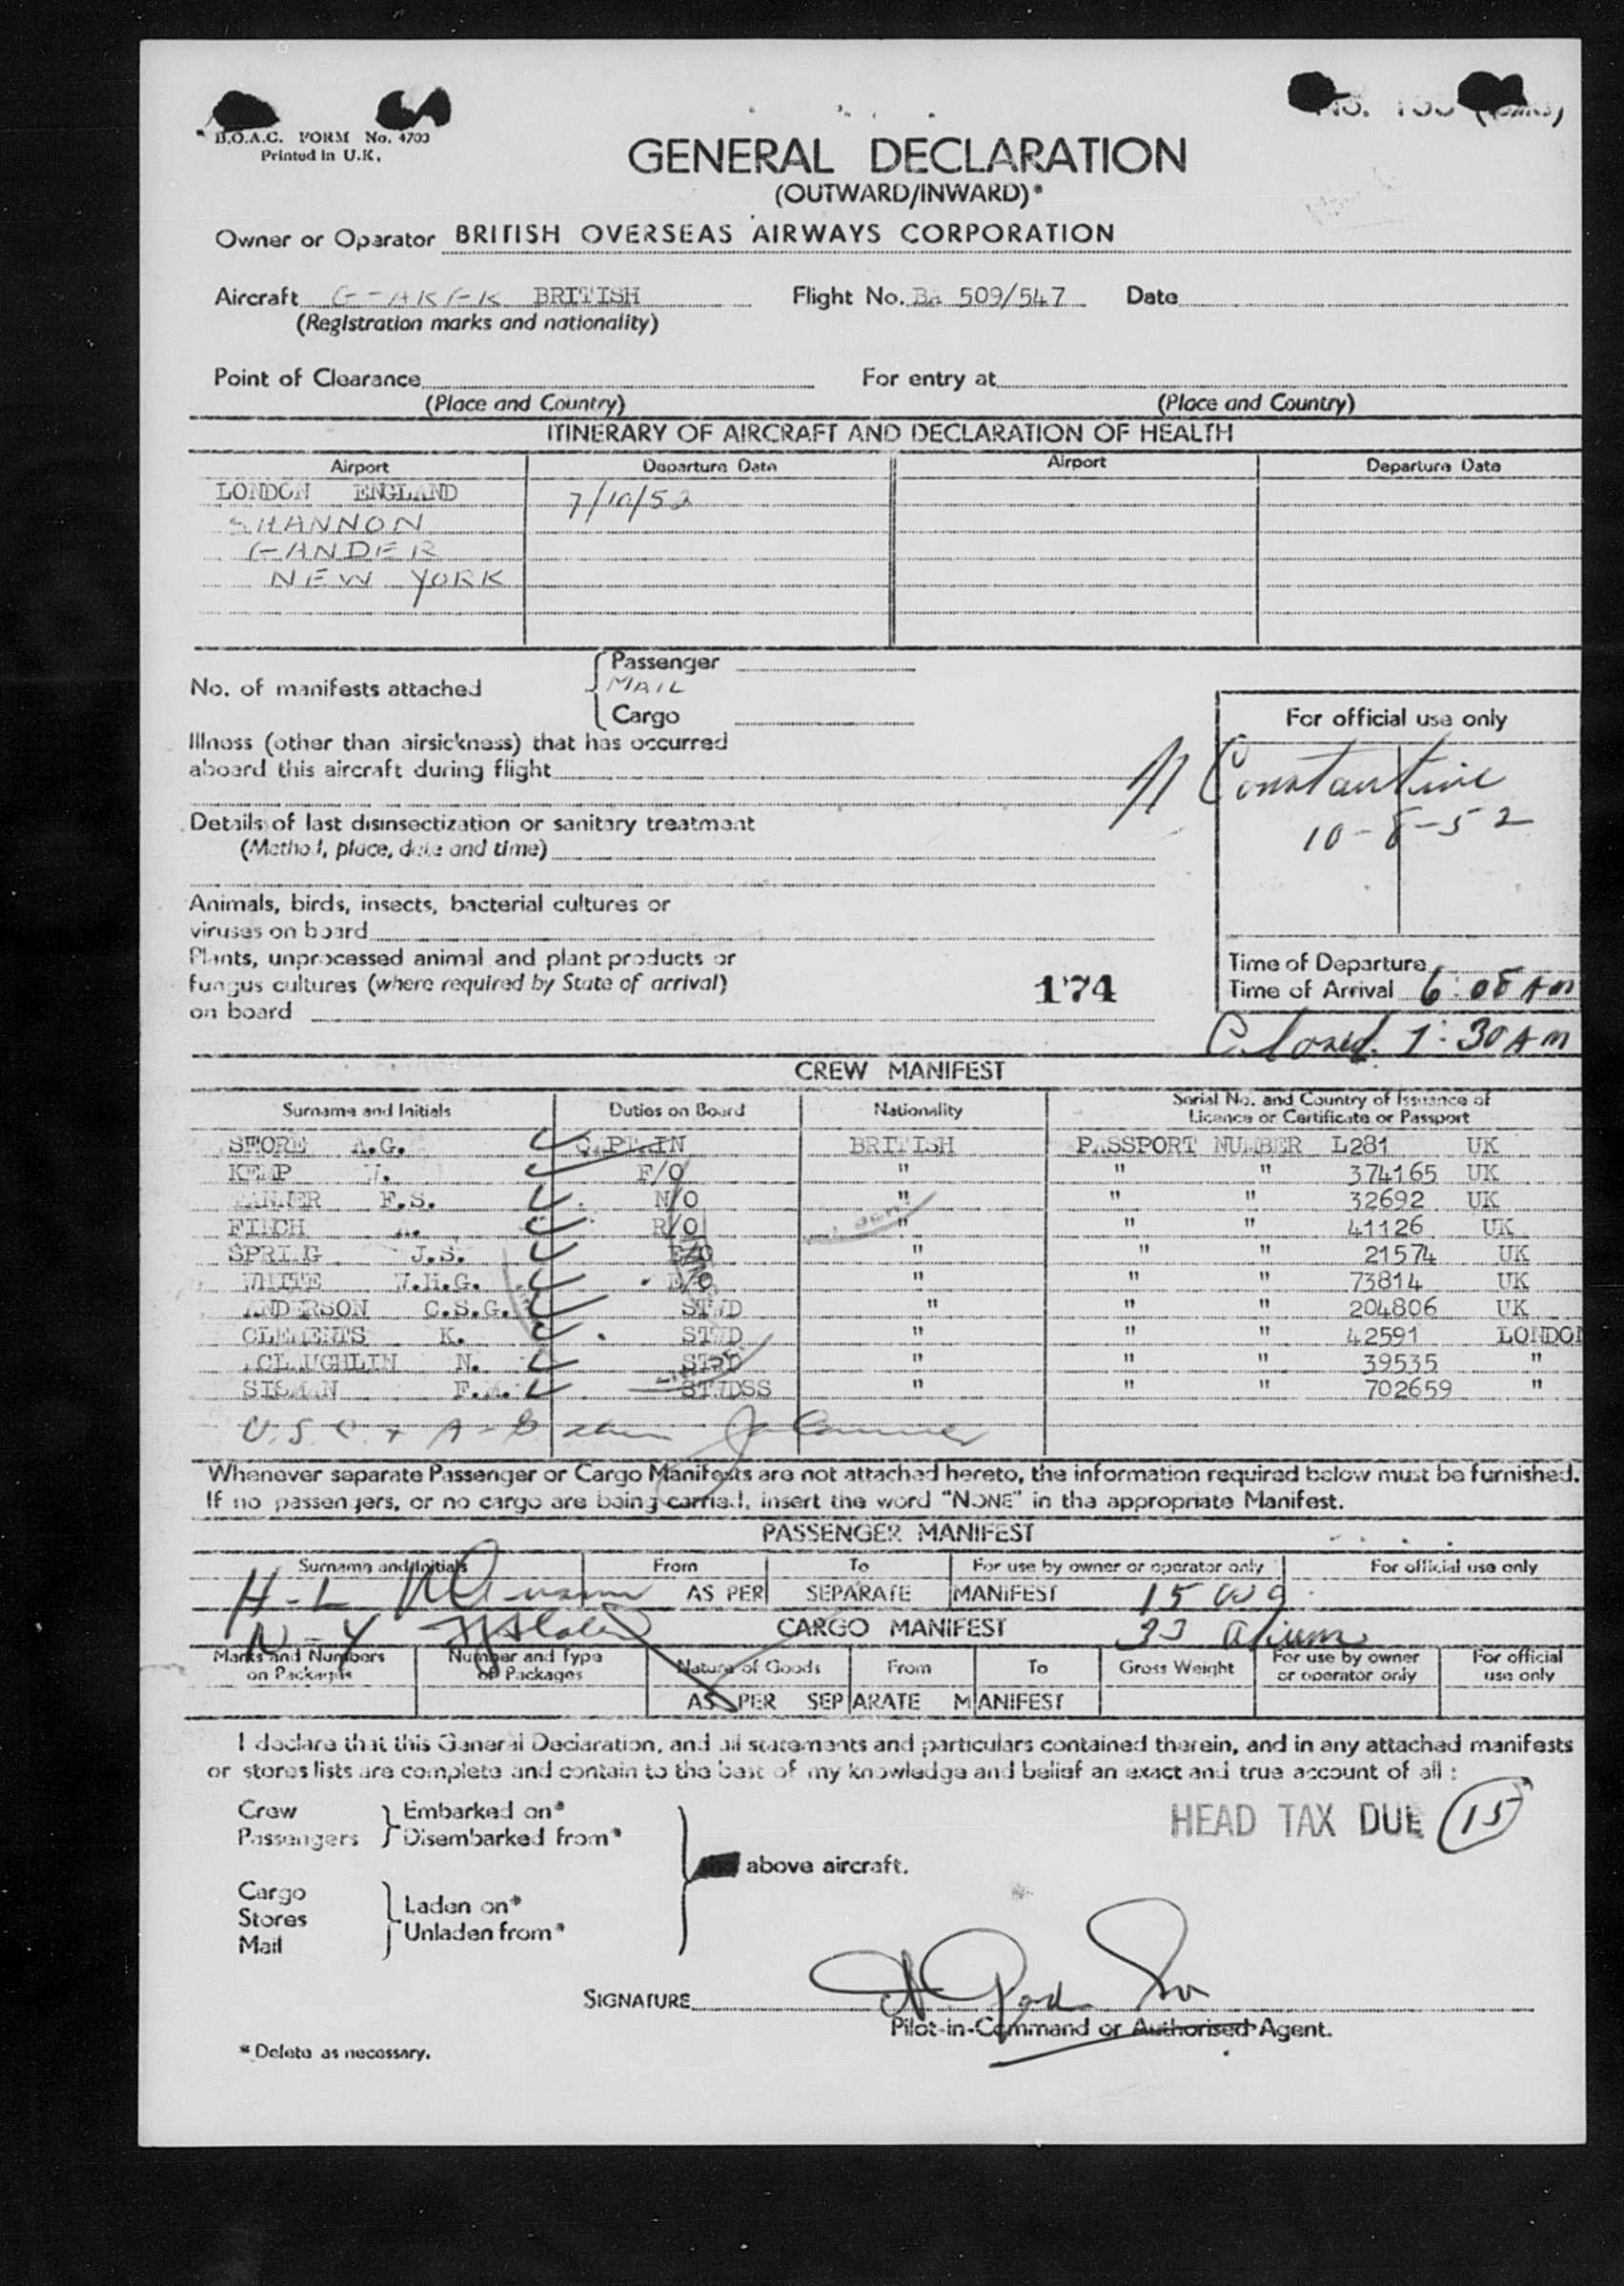 B.O.A.C. FORM No. 4703
Printed in U.K.
GENERAL DECLARATION
(OUTWARD/INWARD)*
Owner or Operator BRITISH OVERSEAS AIRWAYS CORPORATION
Aircraft BRITISH Flight No. BA 509/547 Date
(Registration marks and nationality)
Point of Clearance For entry at
(Place and Country) (Place and Country)
ITINERARY OF AIRCRAFT AND DECLARATION OF HEALTH
Airport Departure Date Airport Departure Date
LONDON ENGLAND 7/10/52
SHANNON
GANDER
NEW YORK
No. of manifests attached
Passenger
MAIL
Cargo
For official use only
Illness (other than airsickness) that has occurred
aboard this aircraft during flight
Constantine
10-8-52
Details of last disinsectization or sanitary treatment
(Method, place, date and time)
Animals, birds, insects, bacterial cultures or
viruses on board
Plants, unprocessed animal and plant products or
fungus cultures (where required by State of arrival)
on board
174
Time of Departure
Time of Arrival 6:08 AM
Closed. 1:30 AM
CREW MANIFEST
Surname and Initials Duties on Board Nationality Serial No. and Country of Issuance of
Licence or Certificate or Passport
STORE A.G. CAPTAIN BRITISH PASSPORT NUMBER L281 UK
KEMP F/O " " " 374165 UK
F.S. N/O " " " 32692 UK
FINCH A. R/O " " " 41126 UK
SPRING J.S. E/O " " " 21574 UK
WHITE W.H.G. E/O " " " 73814 UK
ANDERSON C.S.G. STWD " " " 204806 UK
CLEMENTS K. STWD " " " 42591 LONDON
MCLAUGHLIN N. STWD " " " 39535 "
SISMAN F.M. STWDSS " " " 702659 "
Whenever separate Passenger or Cargo Manifests are not attached hereto, the information required below must be furnished.
If no passengers, or no cargo are being carried, insert the word "NONE" in the appropriate Manifest.
PASSENGER MANIFEST
Surname and Initials From To For use by owner or operator only For official use only
H-L AS PER SEPARATE MANIFEST 15
N-Y CARGO MANIFEST 33
Marks and Numbers on Packages Number and Type of Packages Nature of Goods From To Gross Weight For use by owner or operator only For official use only
AS PER SEPARATE MANIFEST
I declare that this General Declaration, and all statements and particulars contained therein, and in any attached manifests
or stores lists are complete and contain to the best of my knowledge and belief an exact and true account of all :
Crew Embarked on*
Passengers Disembarked from*
HEAD TAX DUE 15
above aircraft.
Cargo
Stores Laden on*
Mail Unladen from*
SIGNATURE
Pilot-in-Command or Authorised Agent.
* Delete as necessary.